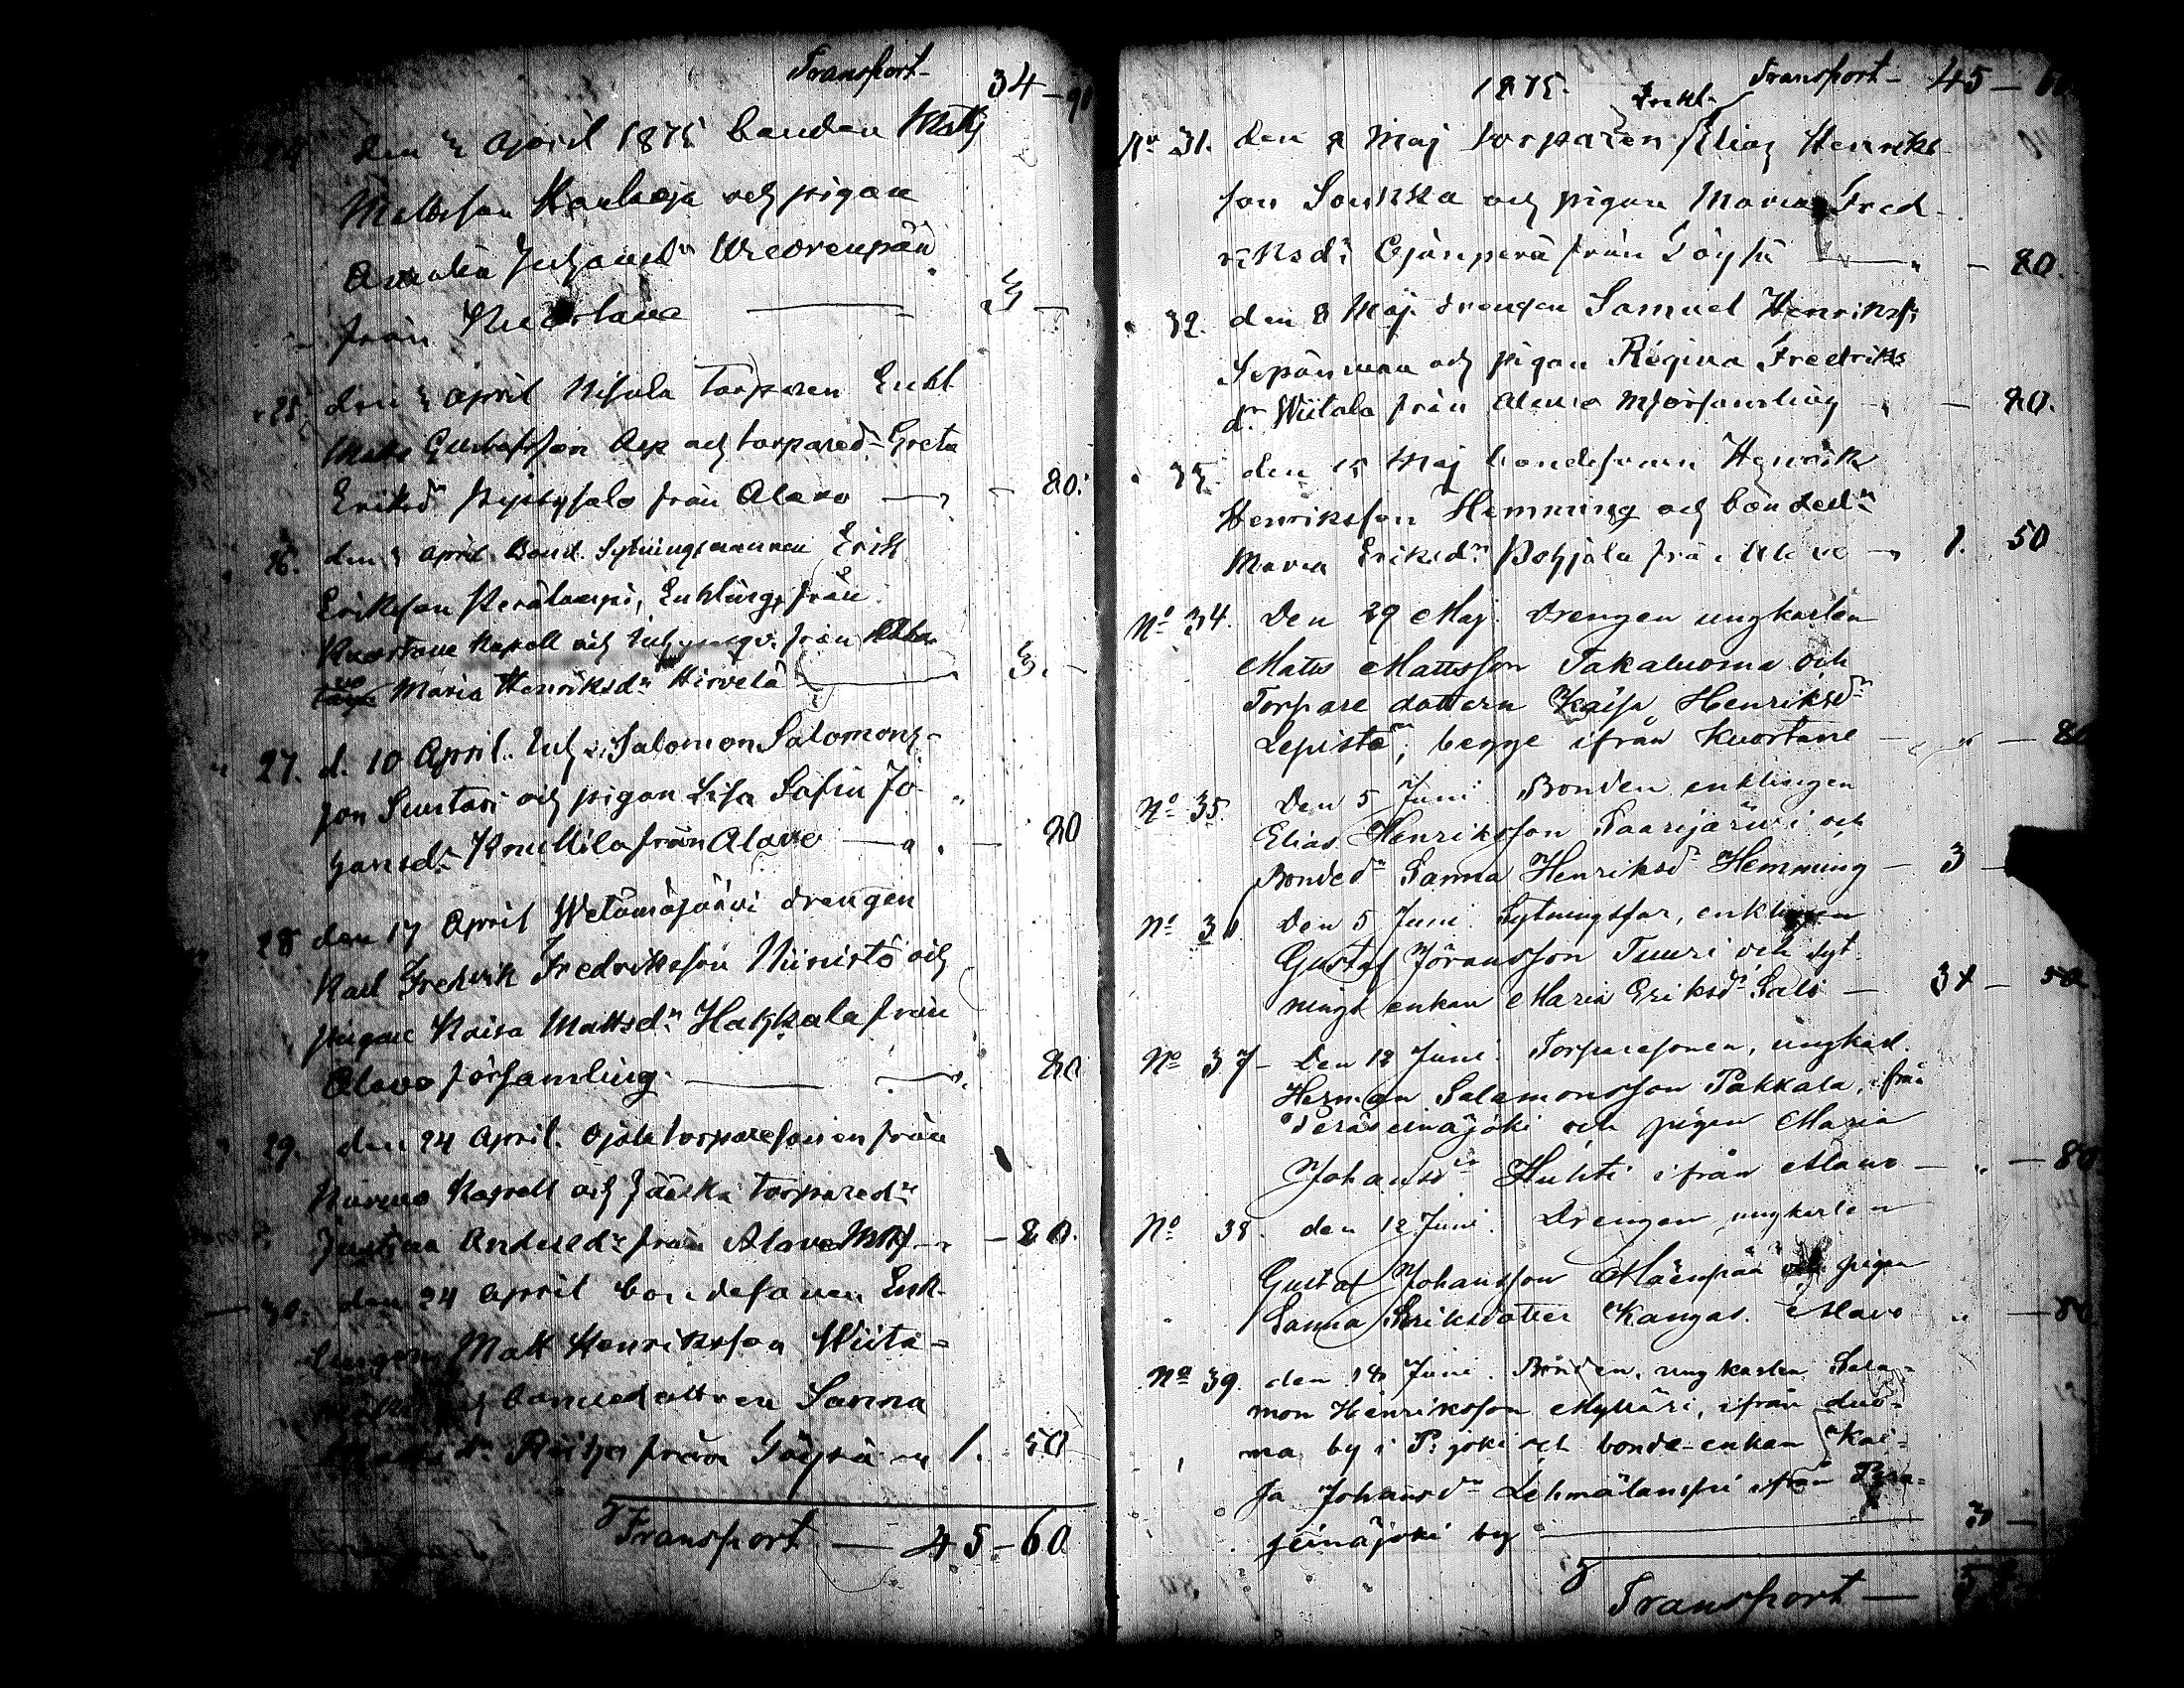 Transport 34 — 90
24 den 3 April 1875 bonden Matts
Mattsson Kauhaja och pigan
Amalia Juhansdr
från Kuortane — 3 —
25. den 3 April Nisula Torparen Enkl
Matts Gustafsson Asp och torpared. Greta
Eriksdr Pyhysalo från Alavo — 80.
26. den 3 April Bond. Sytningsmannen Erik
Eriksson Perälampi, Enkling, från
Kuortane Kapell och från Ala
vo Maria Henriksdr Hirvelä 3. —
27. d. 10 April. Salomon Salomons-
son Suutari och pigan Lisa Sofia Jo-
hansdr Knuttila från Alavo — 80
28 den 17 April Wetämäjärvi drengen
Karl Fredrik Fredriksson Niinistö och
pigan Kaisa Mattsdr Hakkala från
Alavo församling — 80
29. den 24 April. Ojala torparesonen från
Kapell och Jääskä torparedr
Justina Andersdr från Alavo — 80.
30. den 24 April bondesonen Enk-
lingen Matt Henriksson Wiita-
mäki och bondedottren Sanna
Mattsdr Riiho från Töysä 1. 50
Transport — 45 — 60
1875. Transport — 45 — 60
Enkl.
No 31. den 8 Maj torparen Elias Henriks-
son Soukka och pigan Maria Fred-
riksdr Ojanperä från Töysä — 80.
32. den 8 Maj drengen Samuel Henrikss.
Sepänmaa och pigan Regina Fredriks
dr Wiitala från Alavo församling — 80.
33. den 15 Maj bondesonen Henrik
Henriksson Hemming och bondedr
Maria Eriksdr Pohjola från Alavo — 1. 50
No 34. Den 29 Maj. Drengen ungkarlen
Matts Mattsson Takaluoma och
Torpare dottern Kaisa Henriksdr
Lepistö, begge ifrån Kuortane — 80
No 35. Den 5 Juni Bonden enklingen
Elias Henriksson Saarijärwi och
Bondedr Sanna Henriksdr Hemming — 3 —
No 36 Den 5 Juni. Sytningsfar, enklingen
Gustaf Jöransson Tuuri och syt-
nings enkan Maria Eriksdr Salo — 3 — 50
No 37 — Den 12 Juni. Torparesonen, ungkarl.
Herman Salamonsson Pakkala, ifrån
Peräseinäjoki och pigan Maria
Johansdr Huhti ifrån Alavo — 80
No 38. den 12 Juni. Drengen ungkarlen
Gustaf Johansson Mäenpää och pigan
Sanna Eriksdotter Kangas. Alavo — 80
No 39. den 18 Juni. Bonden, ungkarlen Sala-
mon Henriksson Mylläri, ifrån Luo-
ma by i P:joki och bonde-enkan Kai-
sa Johansdr Lehmälampi ifrån Pera-
seinäjoki by — 3 —
Transport —